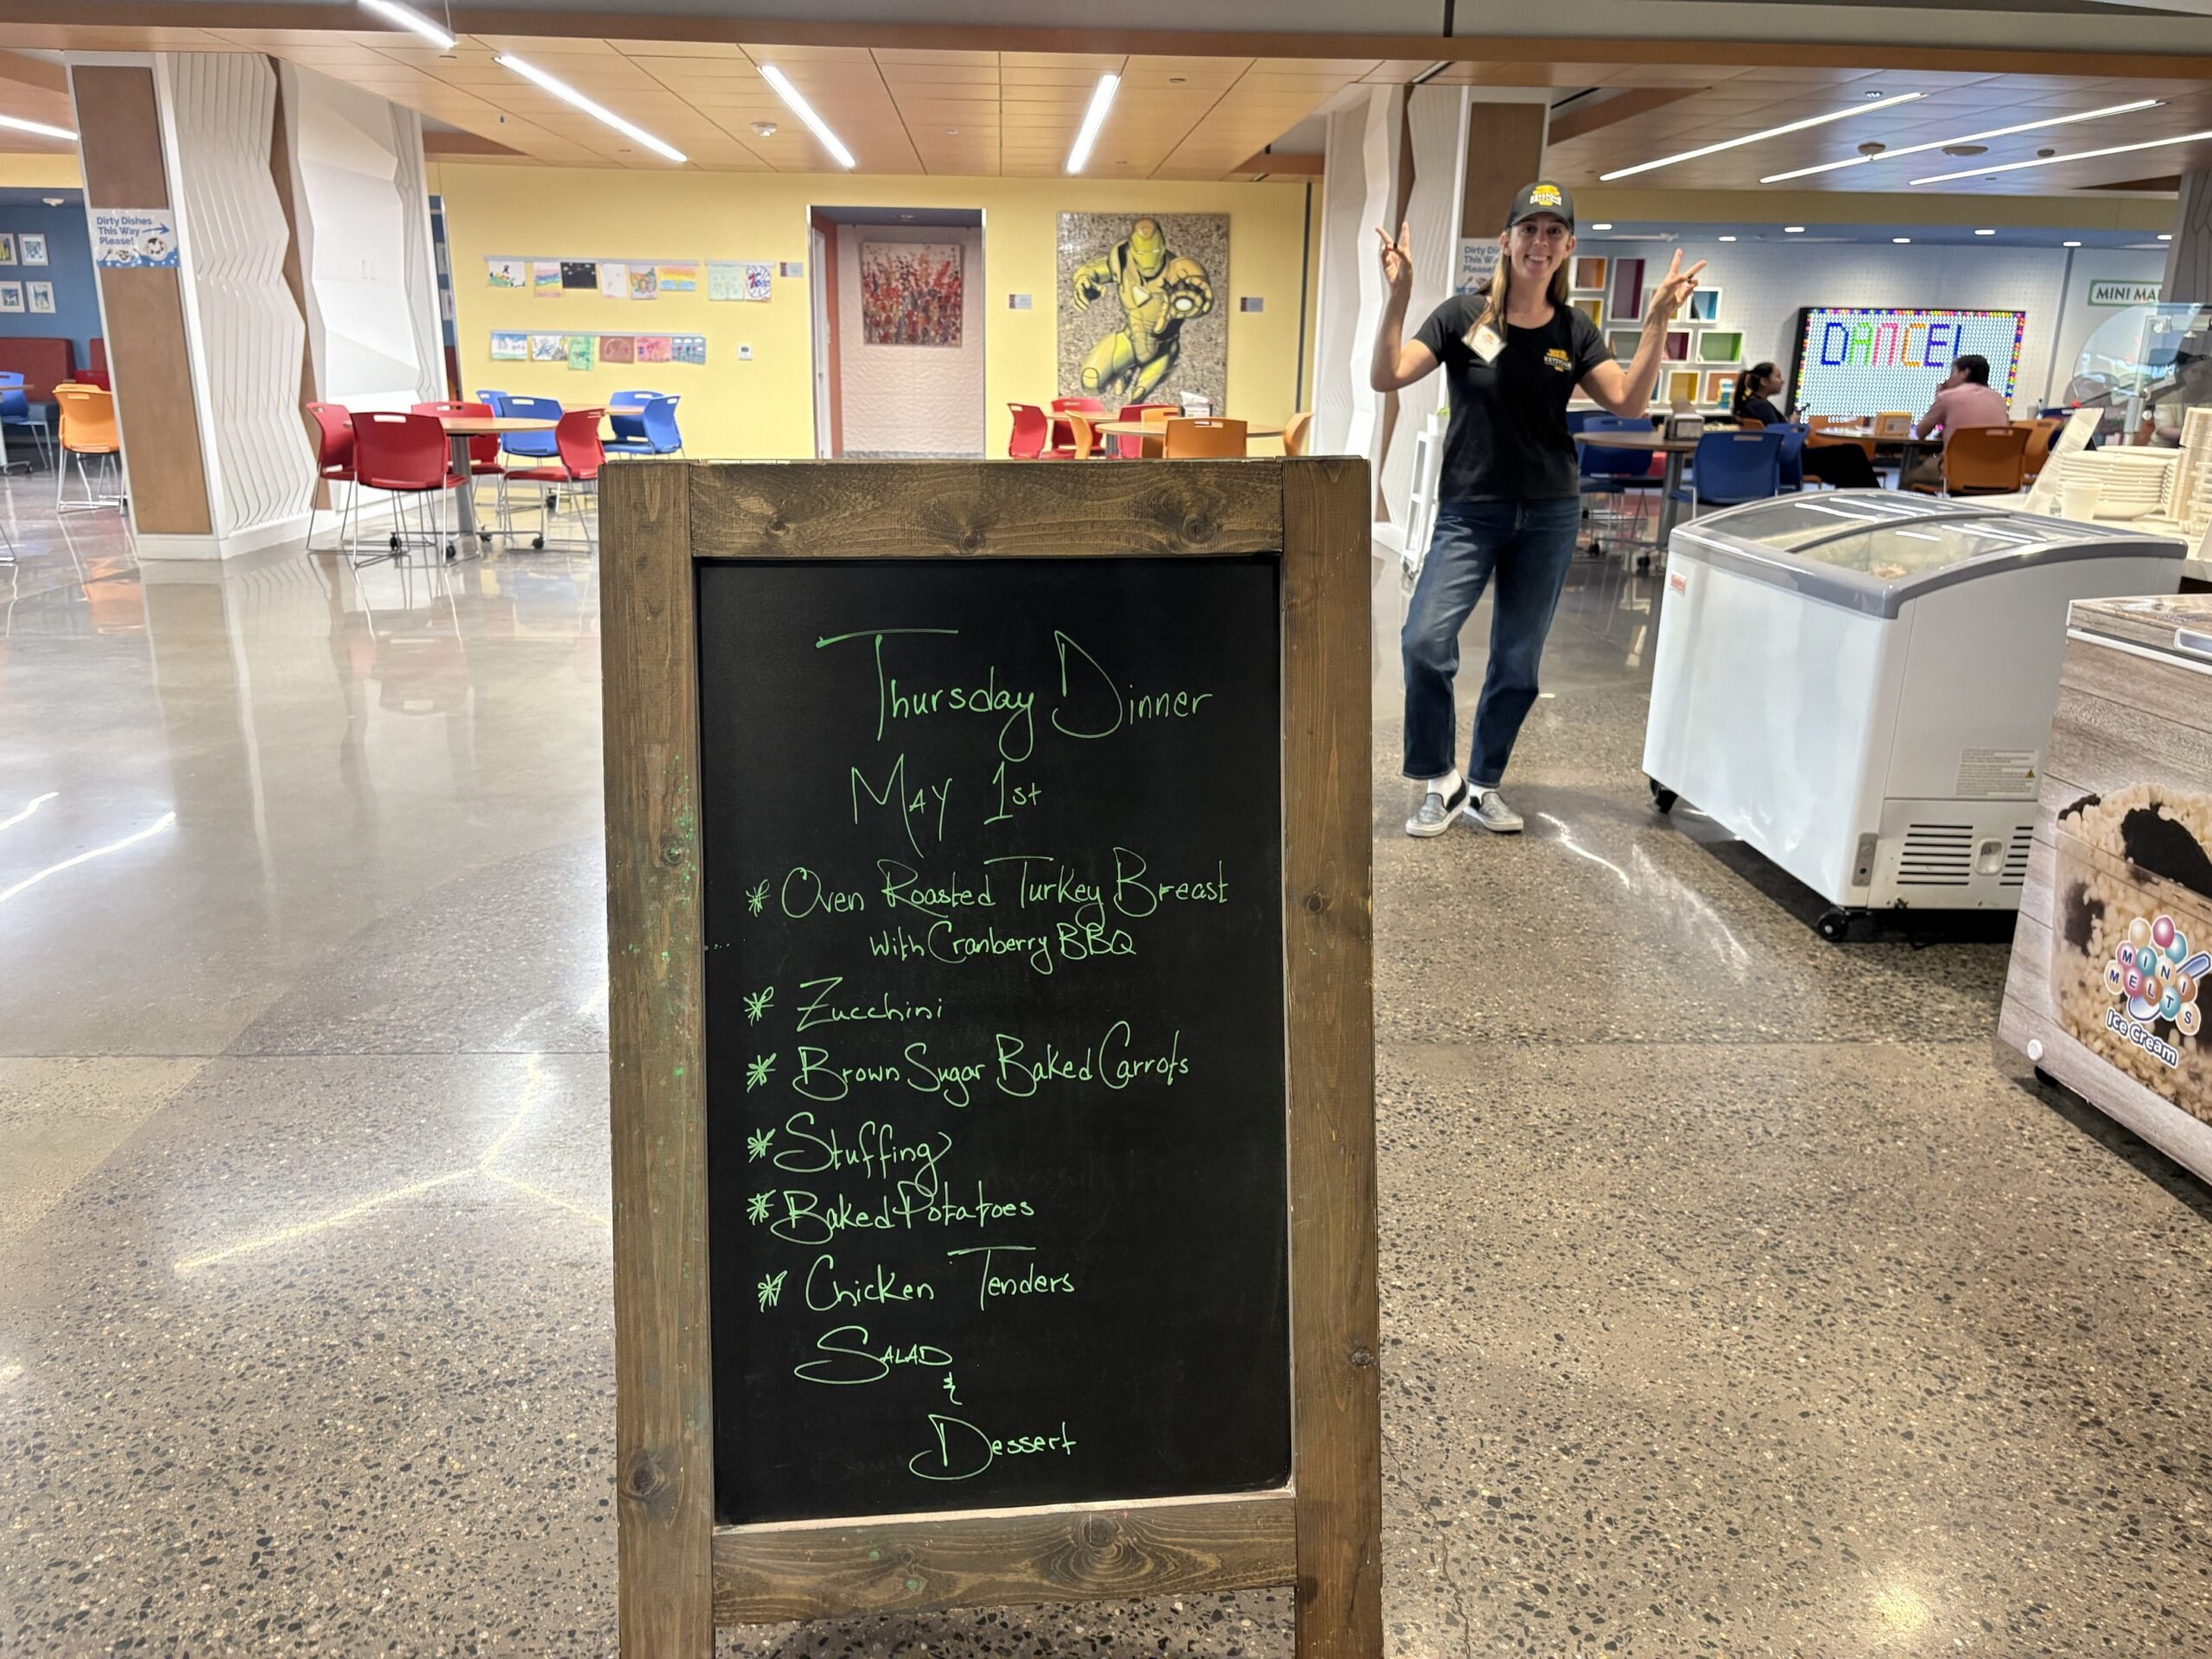 Dirty Dishes
This Way
Please!
Dirty Di
This W
Please
DANCE!
MINI MA
Thursday Dinner
May 1st
* Oven Roasted Turkey Breast
with Cranberry BBQ
* Zucchini
* Brown Sugar Baked Carrots
* Stuffing
* Baked Potatoes
* Chicken Tenders
SALAD
&
Dessert
MINI
MELTS
Ice Cream